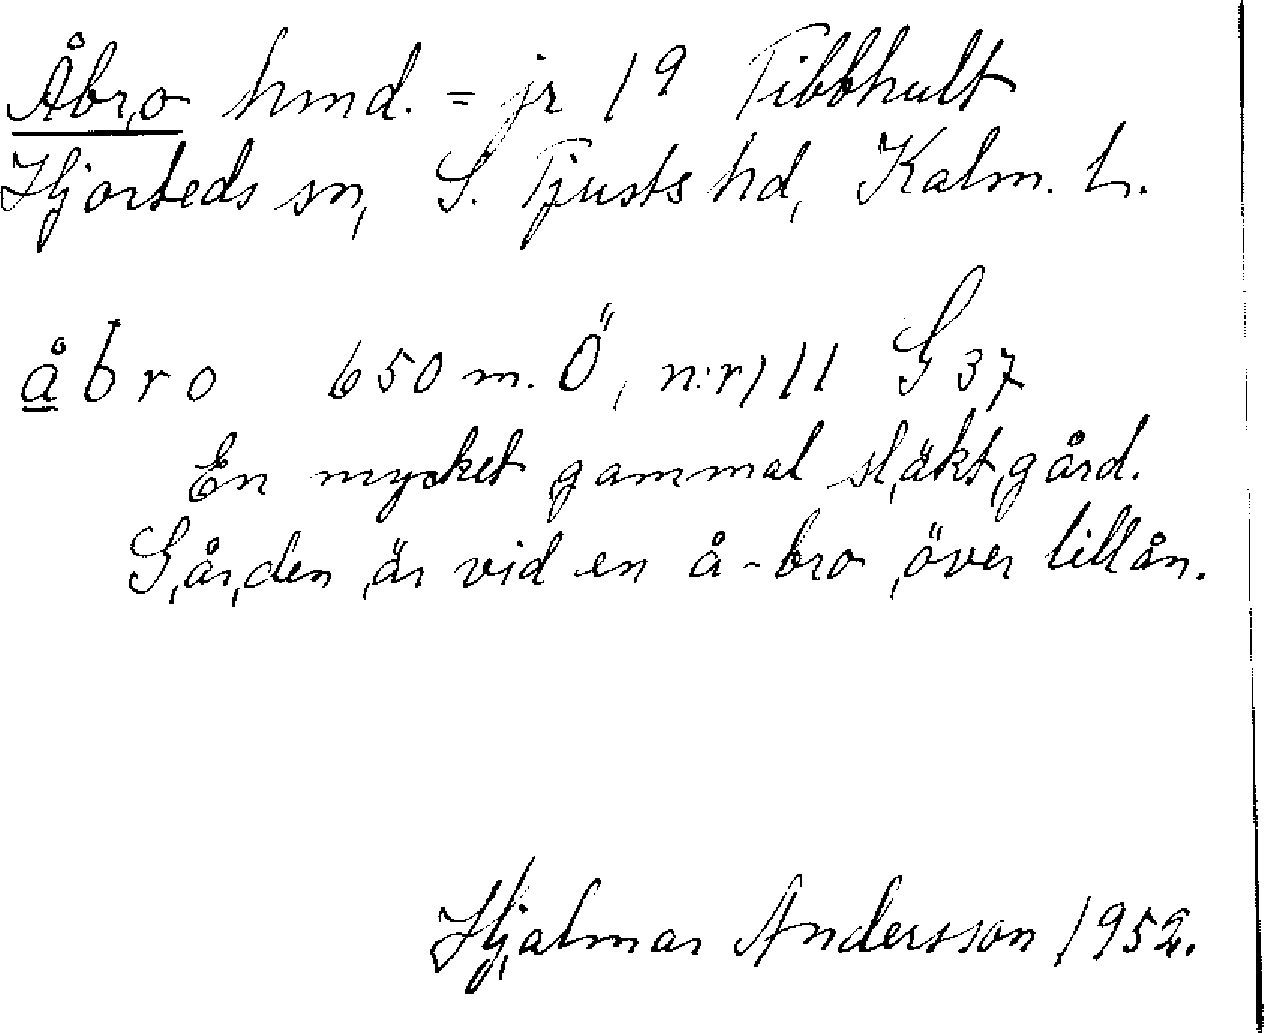 Åbro hmd. = jr 1⁹ Tibbhult
Hjorteds sn, S. Tjusts hd, Kalm. L.
åbro 650 m. Ö, n:r, 11 G 37
En mycket gammal släktgård.
Gården är vid en å-bro över lillån.
Hjalmar Andersson 1952.